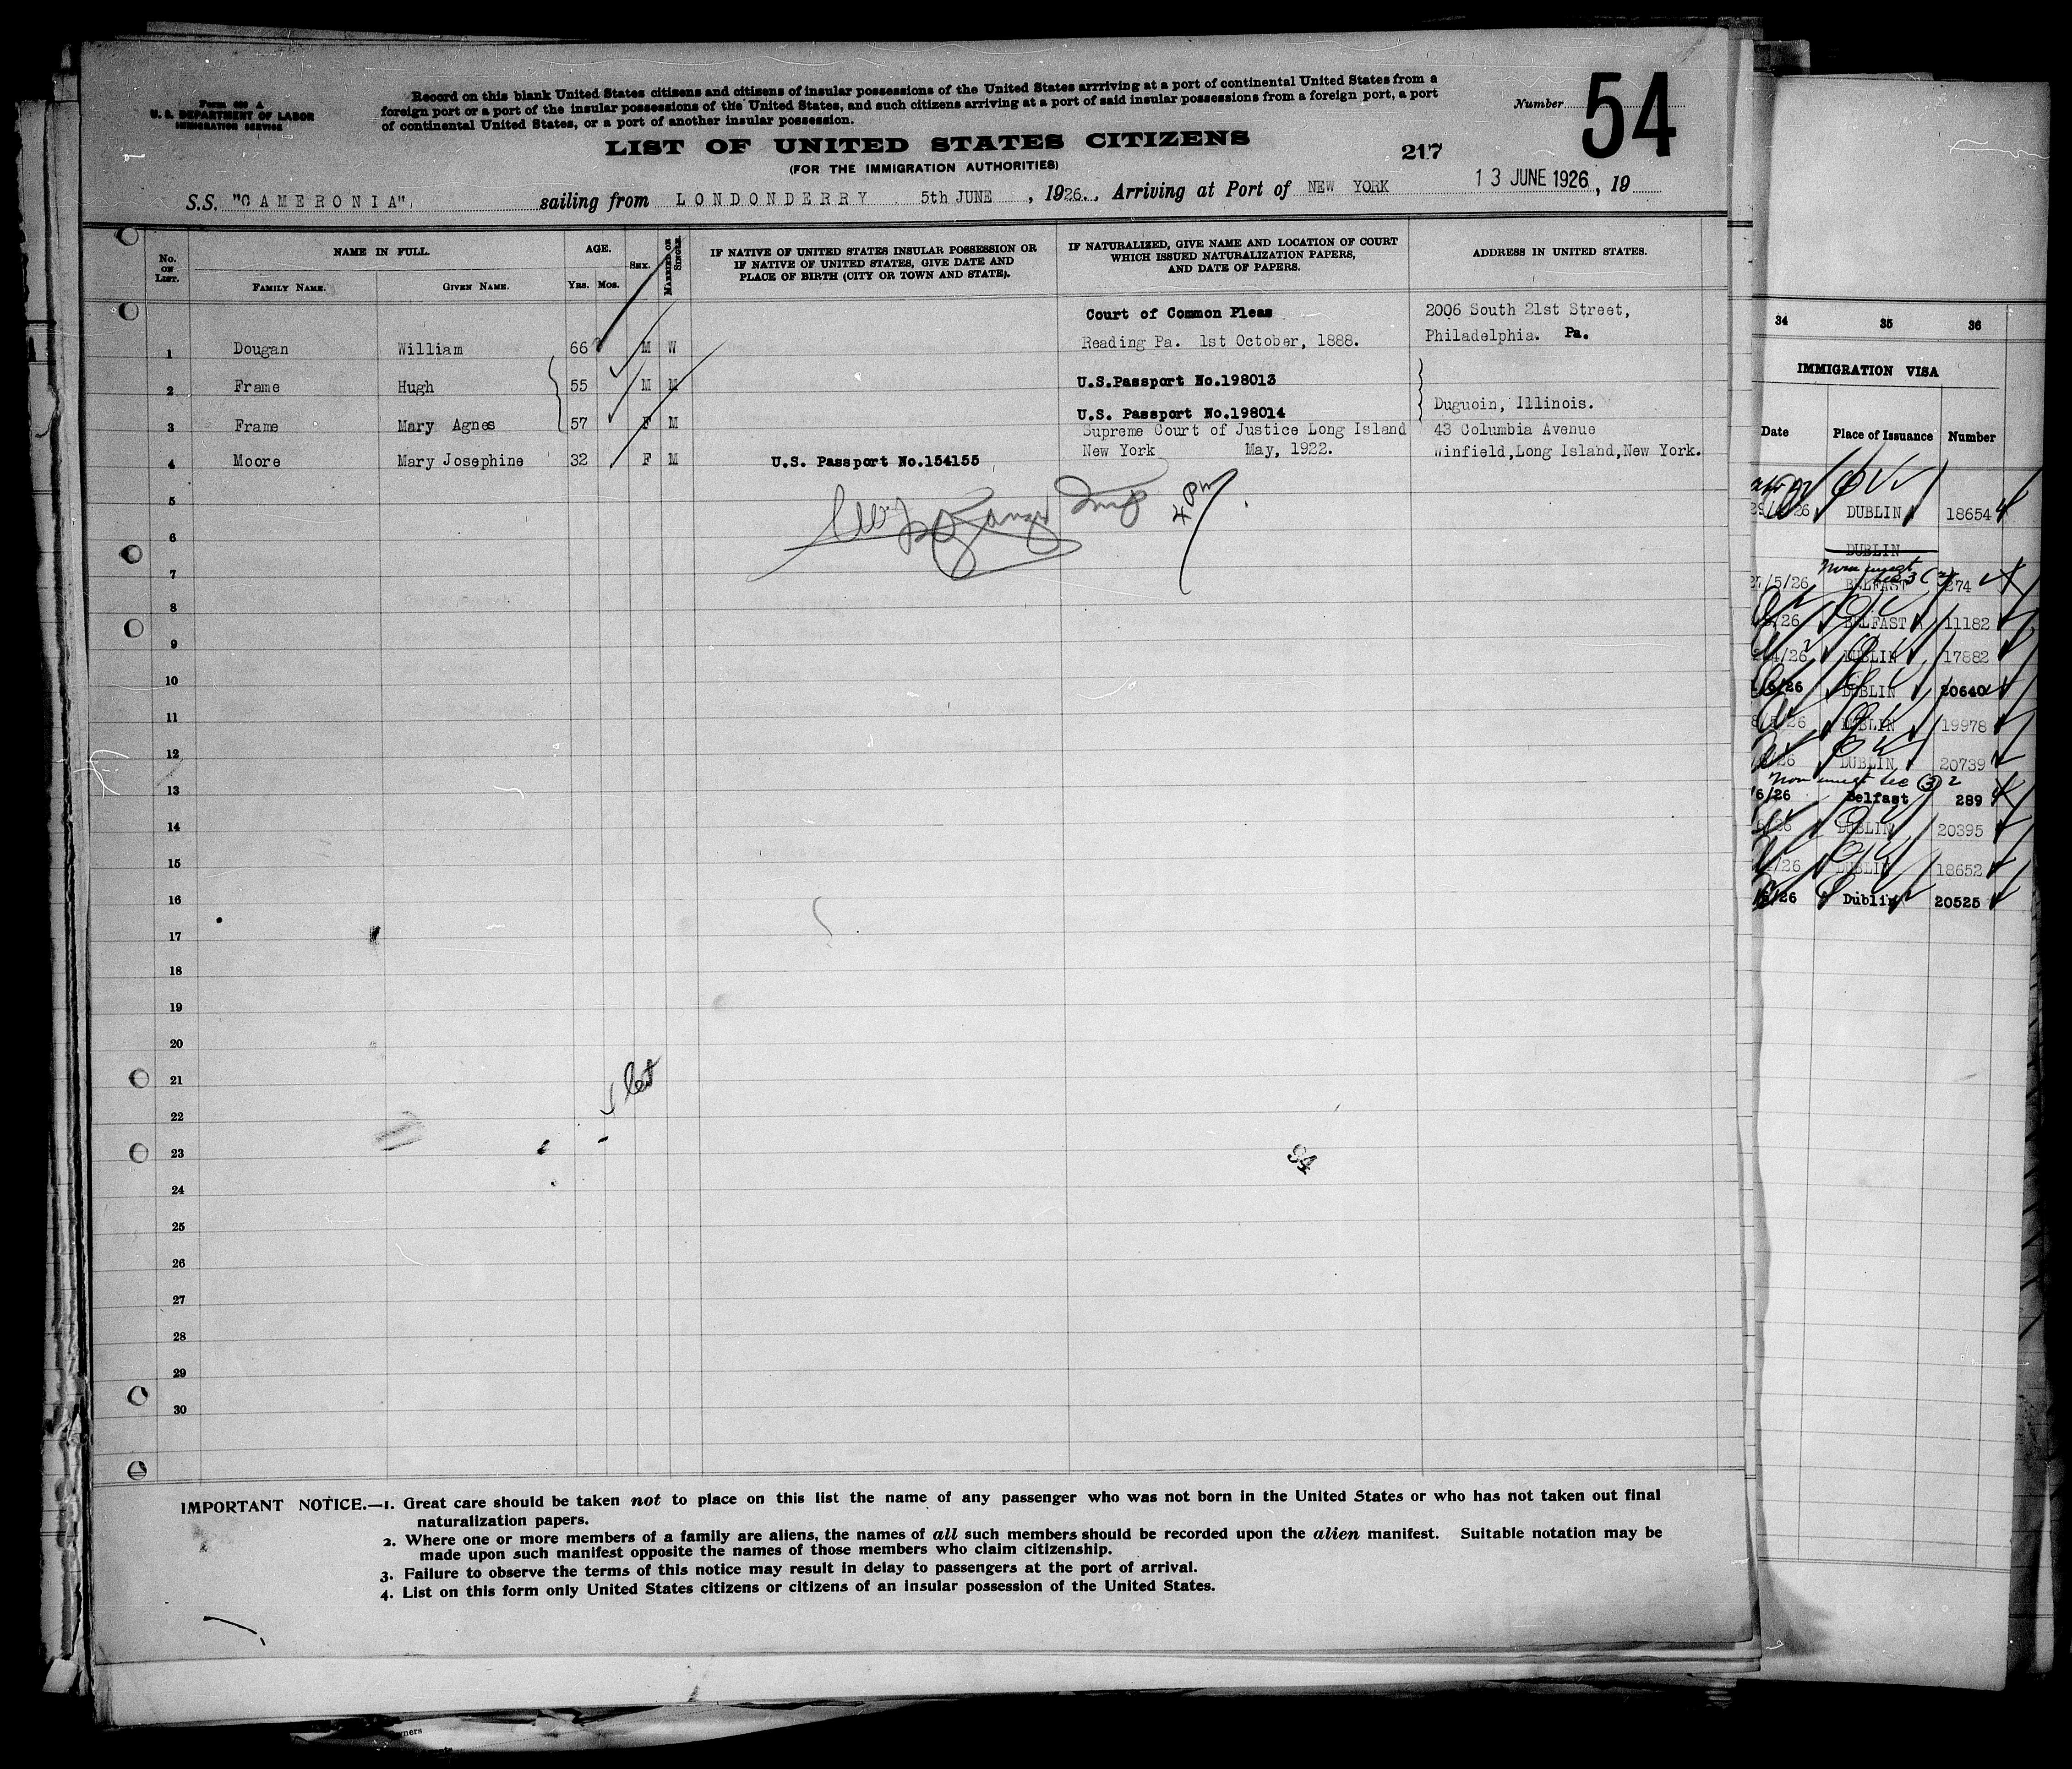 Form 630 A
U. S. DEPARTMENT OF LABOR
IMMIGRATION SERVICE
Record on this blank United States citizens and citizens of insular possessions of the United States arrriving at a port of continental United States from a
foreign port or a port of the insular possessions of the United States, and such citizens arriving at a port of said insular possessions from a foreign port, a port
of continental United States, or a port of another insular possession.
Number 54
LIST OF UNITED STATES CITIZENS
(FOR THE IMMIGRATION AUTHORITIES)
217
S.S. "CAMERONIA", sailing from LONDONDERRY 5th JUNE, 1926., Arriving at Port of NEW YORK 13 JUNE 1926, 19
No. ON LIST.
NAME IN FULL.
FAMILY NAME.
GIVEN NAME.
AGE.
YRS. MOS.
SEX.
MARRIED OR SINGLE.
IF NATIVE OF UNITED STATES INSULAR POSSESSION OR
IF NATIVE OF UNITED STATES, GIVE DATE AND
PLACE OF BIRTH (CITY OR TOWN AND STATE).
IF NATURALIZED, GIVE NAME AND LOCATION OF COURT
WHICH ISSUED NATURALIZATION PAPERS,
AND DATE OF PAPERS.
ADDRESS IN UNITED STATES.
Court of Common Pleas 2006 South 21st Street,
1 Dougan William 66 M W Reading Pa. 1st October, 1888. Philadelphia. Pa.
2 Frame Hugh 55 M M U.S.Passport No.198013
3 Frame Mary Agnes 57 F M U.S. Passport No.198014 Duguoin, Illinois.
Supreme Court of Justice Long Island 43 Columbia Avenue
4 Moore Mary Josephine 32 F M U.S. Passport No.154155 New York May, 1922. Winfield,Long Island,New York.
5
4 Pm
6
7
8
9
10
11
12
13
14
15
16
17
18
19
20
21
22
23
94
24
25
26
27
28
29
30
IMPORTANT NOTICE.—1. Great care should be taken not to place on this list the name of any passenger who was not born in the United States or who has not taken out final
naturalization papers.
2. Where one or more members of a family are aliens, the names of all such members should be recorded upon the alien manifest. Suitable notation may be
made upon such manifest opposite the names of those members who claim citizenship.
3. Failure to observe the terms of this notice may result in delay to passengers at the port of arrival.
4. List on this form only United States citizens or citizens of an insular possession of the United States.
34 35 36
IMMIGRATION VISA
Date Place of Issuance Number
DUBLIN 18654
DUBLIN
27/5/26 BELFAST 274
/26 BELFAST 11182
4/26 DUBLIN 17882
/6/26 DUBLIN 20640
8/5/26 DUBLIN 19978
/26 DUBLIN 20739
6/26 Belfast 289
DUBLIN 20395
/26 DUBLIN 18652
/26 Dublin 20525